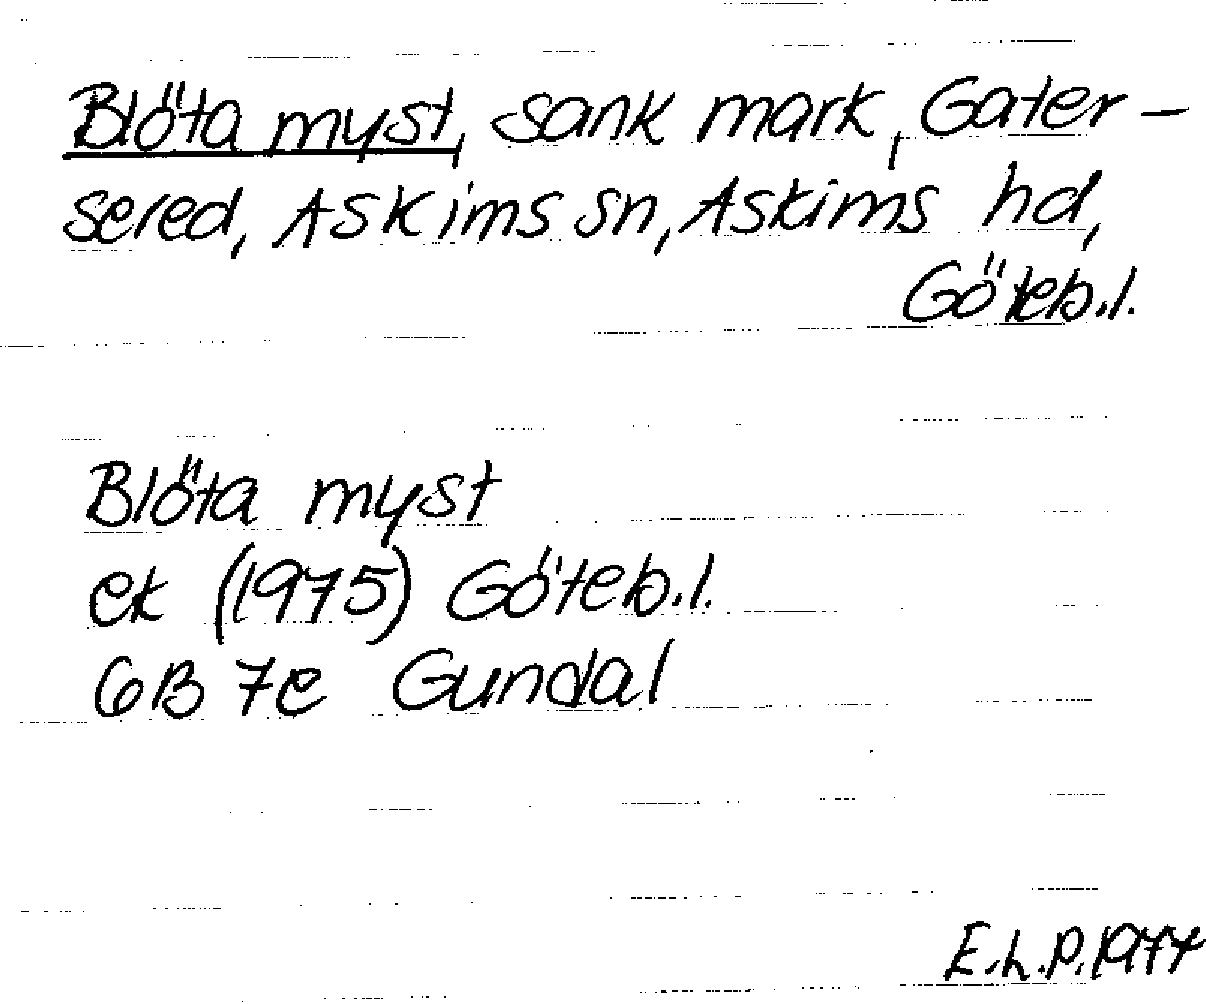 Blöta myst, sank mark, Gater-
sered, Askims sn, Askims hd,
Göteb.l.
Blöta myst
ek (1975) Göteb.l.
6B 7e Gundal
E.L.P. 1977